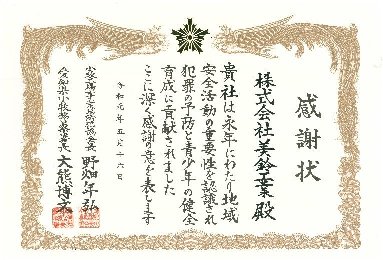 感謝状
株式会社美鈴工業 殿
貴社は永年にわたり地域
安全活動の重要性を認識され
犯罪の予防と青少年の健全
育成に貢献されました
ここに深く感謝の意を表します
令和元年五月十六日
野畑年弘
愛知県小牧警察署長 大熊博文